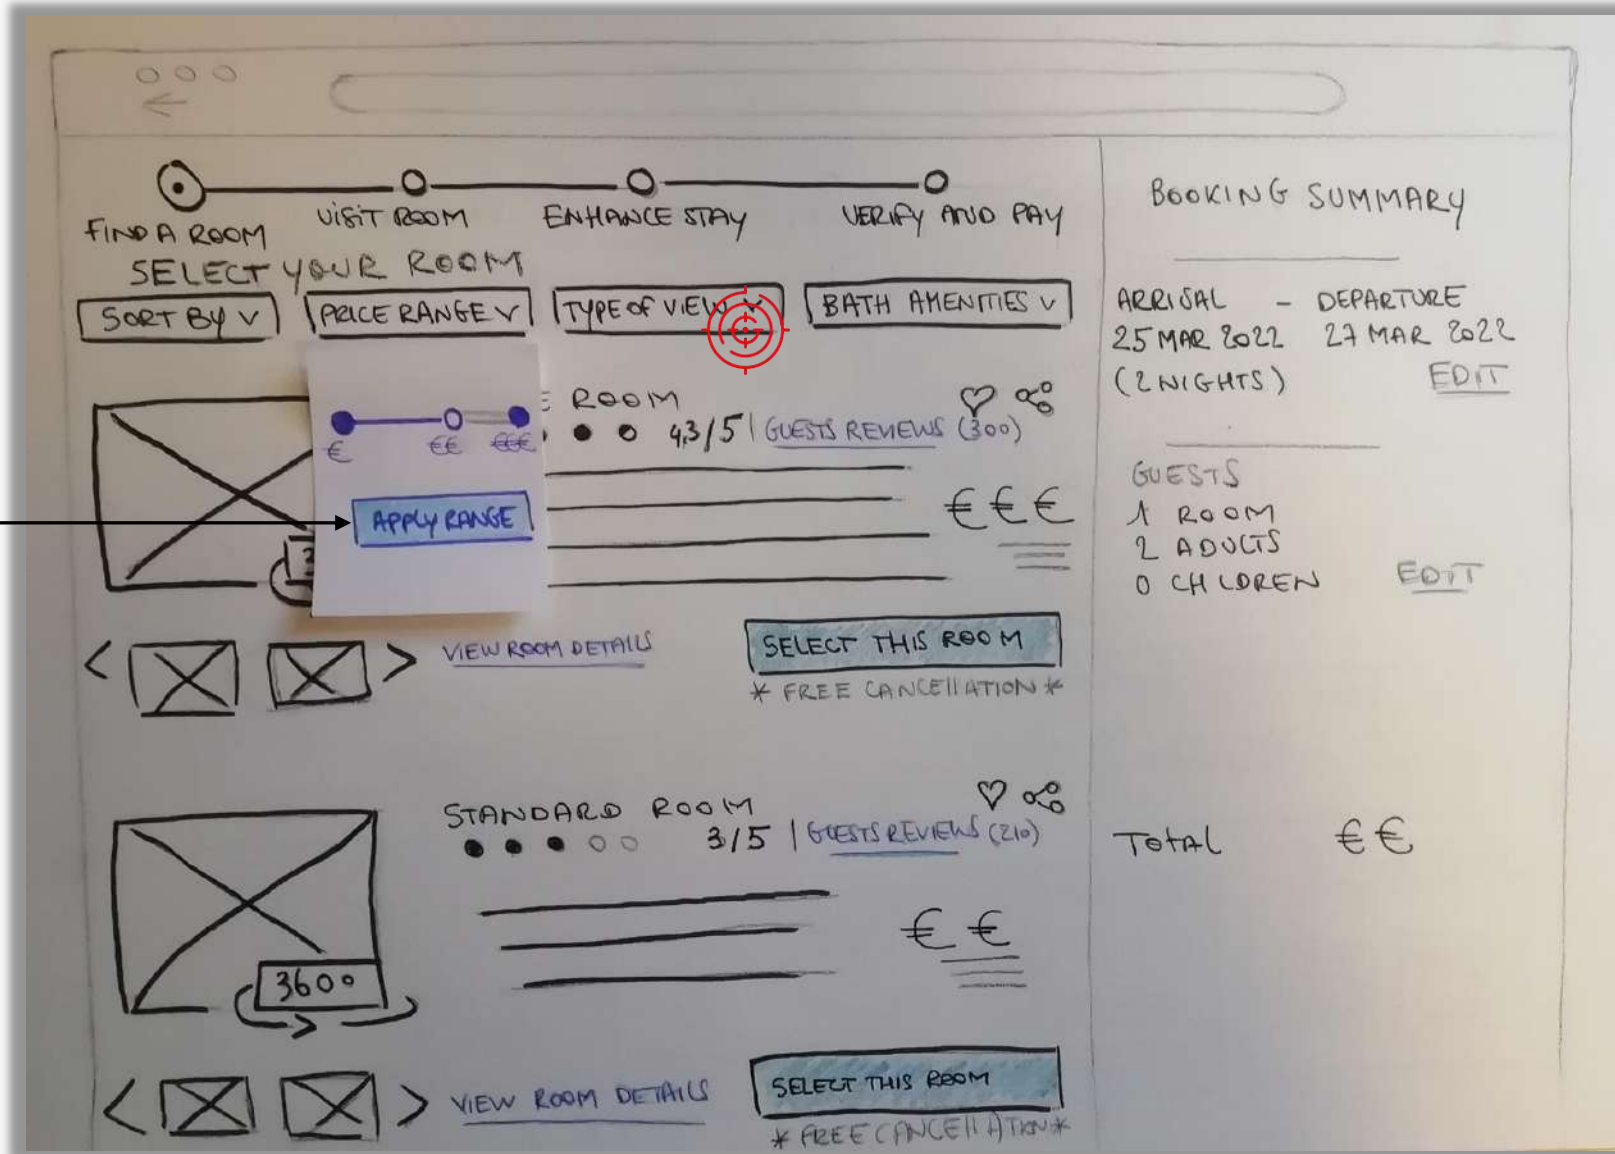 FIND A ROOM
VISIT ROOM
ENHANCE STAY
VERIFY AND PAY
SELECT YOUR ROOM
SORT BY V
PRICE RANGE V
TYPE OF VIEW V
BATH AMENITIES V
E ROOM
4,3/5 | GUESTS REVIEWS (300)
€ €€ €€€
APPLY RANGE
€€€
VIEW ROOM DETAILS
SELECT THIS ROOM
* FREE CANCELLATION *
STANDARD ROOM
3/5 | GUESTS REVIEWS (210)
€€
360°
VIEW ROOM DETAILS
SELECT THIS ROOM
* FREE CANCELLATION *
BOOKING SUMMARY
ARRISAL - DEPARTURE
25 MAR 2022 27 MAR 2022
(2 NIGHTS) EDIT
GUESTS
1 ROOM
2 ADULTS
0 CHLDREN EDIT
TOTAL €€